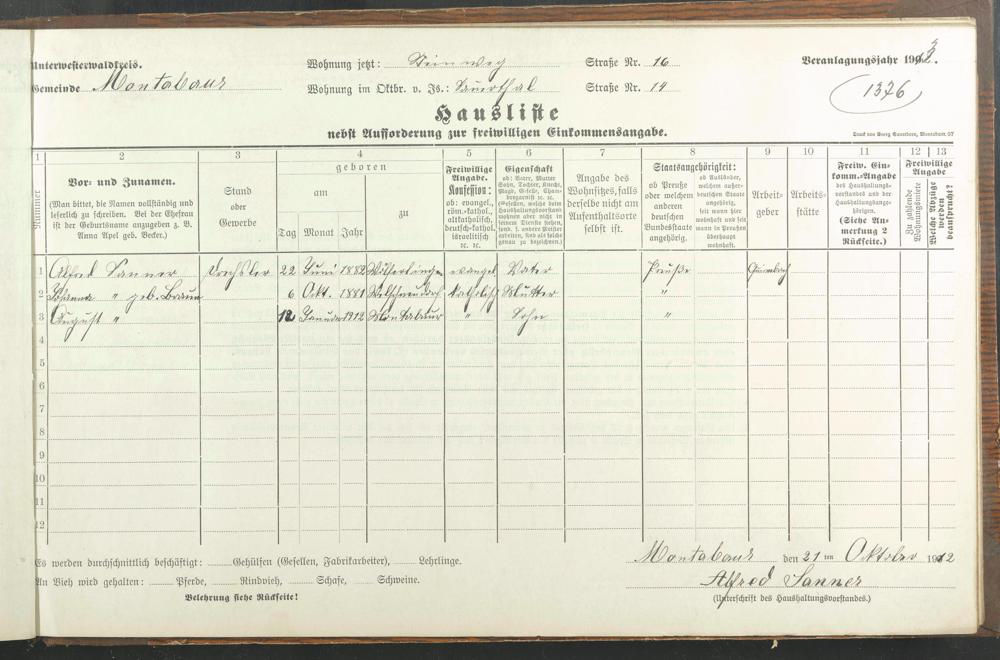 Unterwesterwaldkreis.
Gemeinde Montabaur
Wohnung jetzt: Steinweg Straße Nr. 16
Wohnung im Oktbr. v. Js.: Sauerthal Straße Nr. 14
Veranlagungsjahr 1913.
1376
Hausliste
nebst Aufforderung zur freiwilligen Einkommensangabe.
Druck von Georg Sauerborn, Montabaur. 07
1 2 3 4 5 6 7 8 9 10 11 12 13
Nummer
Vor- und Zunamen.
(Man bittet, die Namen vollständig und
leserlich zu schreiben. Bei der Ehefrau
ist der Geburtsname anzugeben z. B.
Anna Apel geb. Becker.)
Stand
oder
Gewerbe
geboren
am
Tag Monat Jahr
zu
Freiwillige
Angabe.
Konfession:
ob: evangel.,
röm.-kathol.,
altkatholisch,
deutsch-kathol.,
israelitisch
ꝛc. ꝛc.
Eigenschaft
ob: Vater, Mutter
Sohn, Tochter, Knecht,
Magd, Geselle, Cham-
bregarnist ꝛc. ꝛc.
(Gesellen, welche beim
Haushaltungsvorstand
wohnen aber nicht in
seinem Dienste stehen,
sond. f. andere Meister
arbeiten, sind als solche
genau zu bezeichnen.)
Angabe des
Wohnsitzes, falls
derselbe nicht am
Aufenthaltsorte
selbst ist.
Staatsangehörigkeit:
ob Preuße
oder welchem
anderen
deutschen
Bundesstaate
angehörig.
ob Ausländer,
welchem außer-
deutschen Staate
angehörig,
seit wann hier
wohnhaft und seit
wann in Preußen
überhaupt
wohnhaft.
Arbeit-
geber
Arbeits-
stätte
Freiw. Ein-
komm.-Angabe
des Haushaltungs-
vorstandes und der
Haushaltungsange-
hörigen.
(Siehe An-
merkung 2
Rückseite.)
Freiwillige
Angabe
Zu zahlende
Wohnungsmiete
Welche Abzüge
werden
beansprucht?
1 Alfred Sanner Drechsler 22 Juni 1882 evangel Vater Preuße
2 Johanna " geb. Braun 6 Okt. 1881 Welschneudorf katholisch Mutter "
3 August " 12 Januar 1912 Montabaur " Sohn "
4
5
6
7
8
9
10
11
12
Es werden durchschnittlich beschäftigt: Gehülfen (Gesellen, Fabrikarbeiter), Lehrlinge.
An Vieh wird gehalten: Pferde, Rindvieh, Schafe, Schweine.
Belehrung siehe Rückseite!
Montabaur den 21 ten Oktober 1912
Alfred Sanner
(Unterschrift des Haushaltungsvorstandes.)